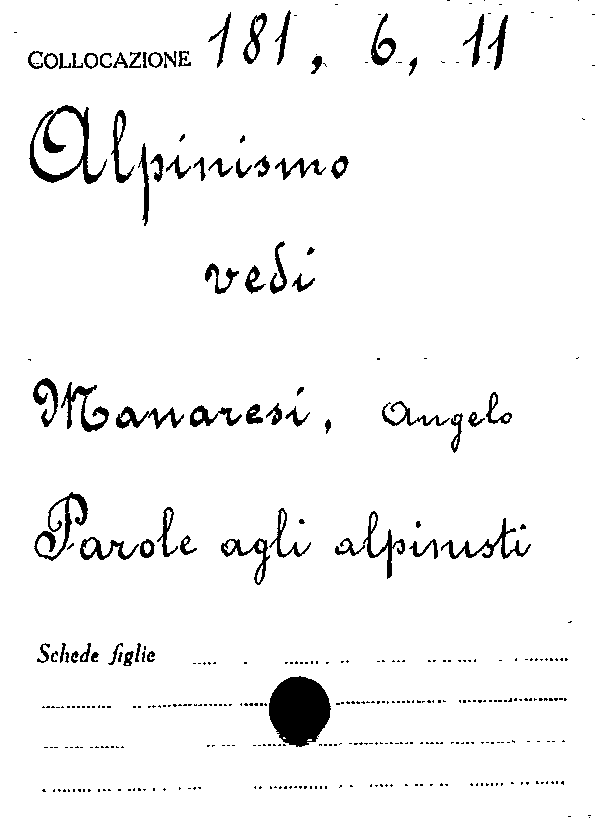 COLLOCAZIONE 181, 6, 11
Alpinismo
vedi
Manaresi, Angelo
Parole agli alpinisti
Schede figlie